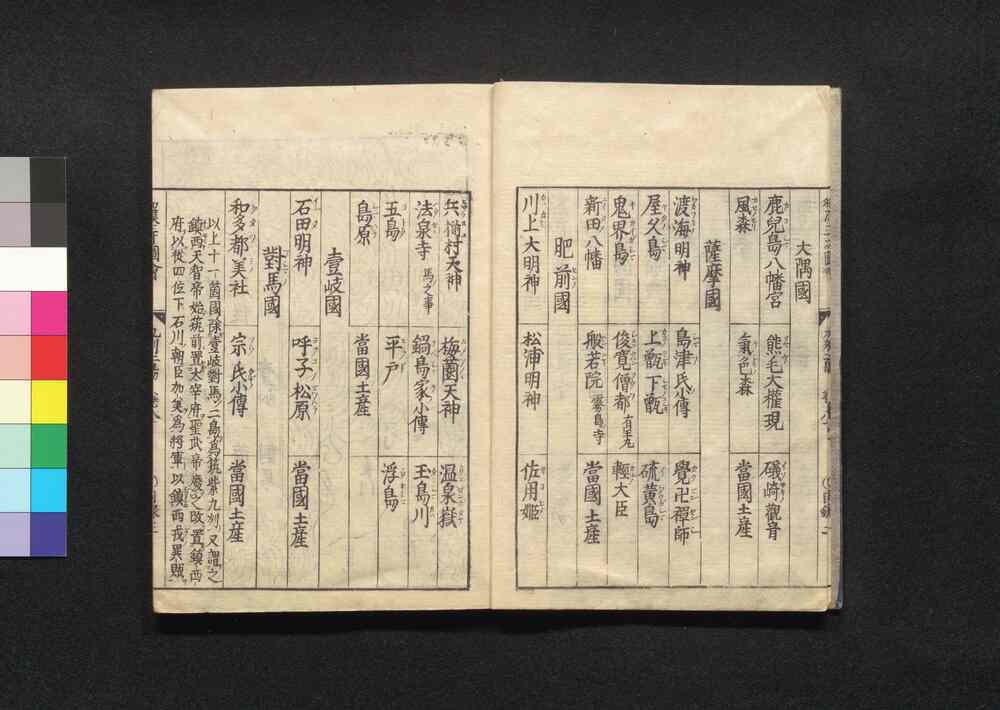 大隅國
鹿兒島八幡宮 熊毛大權現 礒﨑觀音
風森 氣色森 當國土産
薩摩國
渡海明神 島津氏小傳 覺卍禪師
屋久島 上甑下甑 硫黄島
鬼界島 俊寛僧都 有王丸 輕大臣
新田八幡 般若院 當國土産
肥前國
川上大明神 松浦明神 佐用姫
兵揃村天神 梅園天神 温泉嶽
法泉寺 馬之事 鍋島家小傳 玉島川
五島 平戸 浮島
島原 當國土産
壹岐國
石田明神 呼子松原 當國土産
對馬國
和多都美社 宗氏小傳 當國土産
以上十一箇國除壹岐對馬二島爲筑紫九列又謂之
鎮西天智帝始筑前置太宰府聖武帝廢之改置鎮西
府以從四位下石川朝臣加美爲將軍以鎮西戎異賊